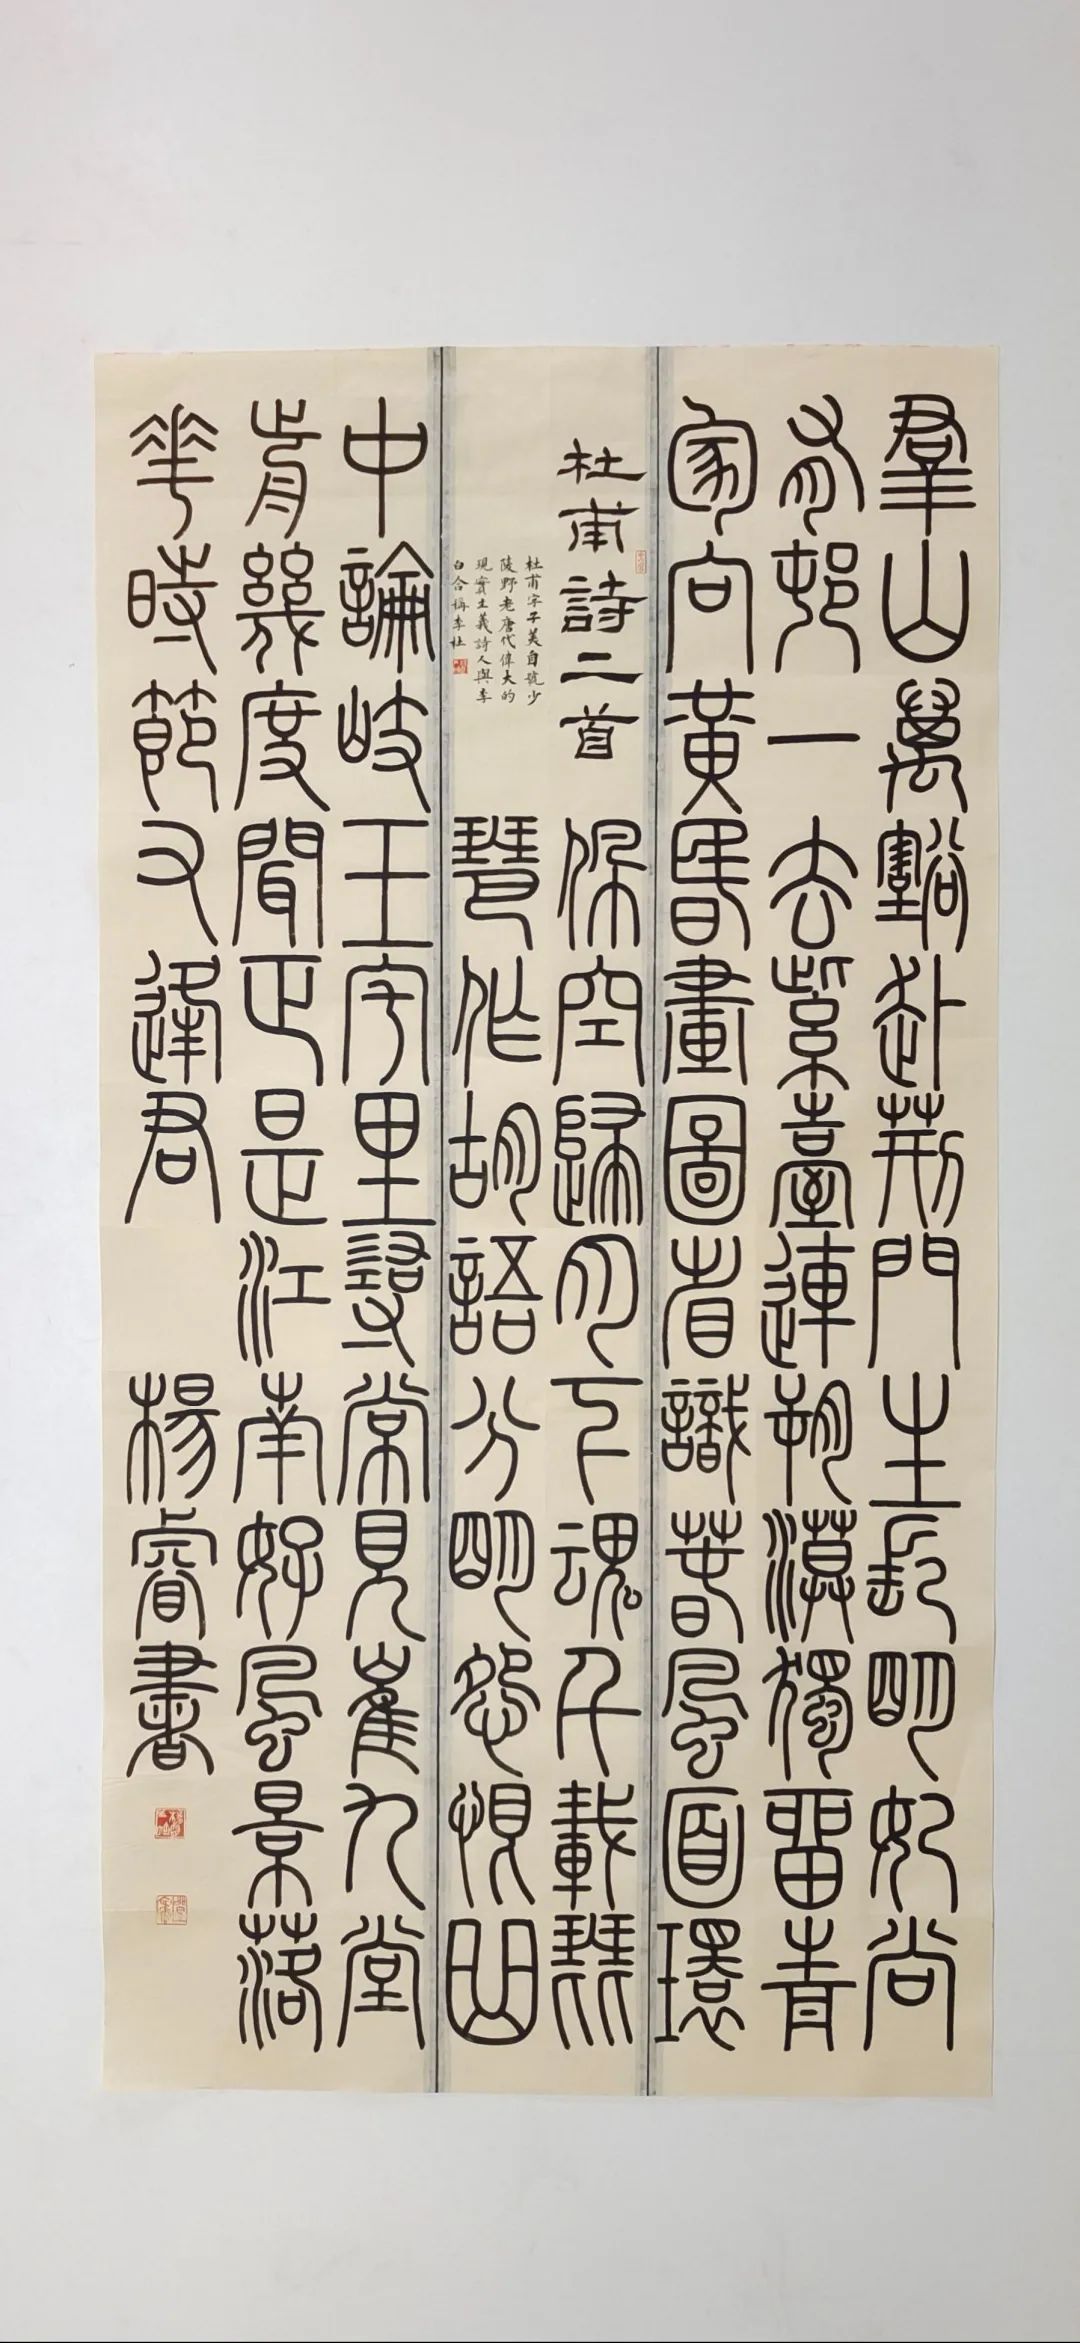 羣山萬壑赴荊門生長明妃尚
有邨一去紫臺連朔漠獨留青
冢向黃昏畫圖省識春風面環
杜甫詩二首
杜甫字子美自號少
陵野老唐代偉大的
現實主義詩人與李
白合稱李杜
佩空歸月下魂千載琵
琶作胡語分明怨恨曲
中論岐王宅里尋常見崔九堂
前幾度聞正是江南好風景落
華時節又逢君
楊睿書